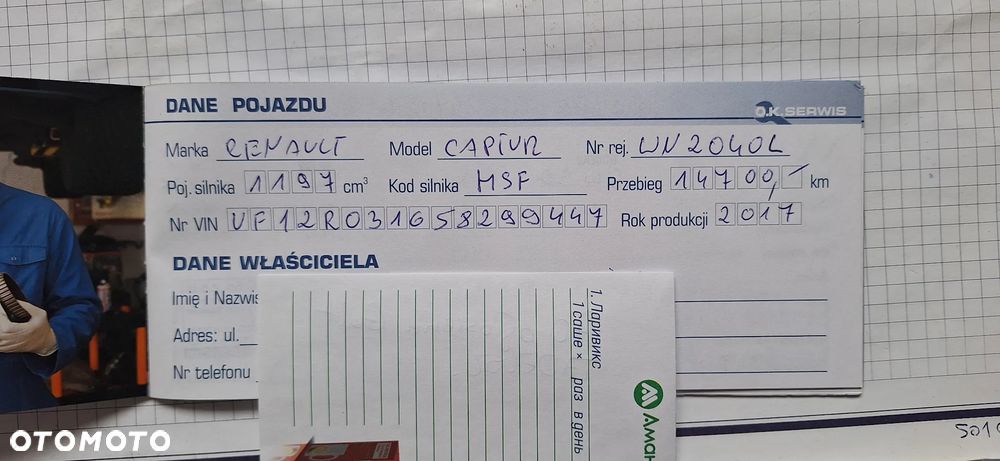 DANE POJAZDU
O.K. SERWIS
Marka RENAULT Model CAPTUR Nr rej. WN2040L
Poj. silnika 1197 cm³ Kod silnika H5F Przebieg 14700,- km
Nr VIN VF12R031658299447 Rok produkcji 2017
DANE WŁAŚCICIELA
Imię i Nazwis
Adres: ul.
Nr telefonu
1. Ларивикс
1 саше × раз в день
Аман
501
OTOMOTO